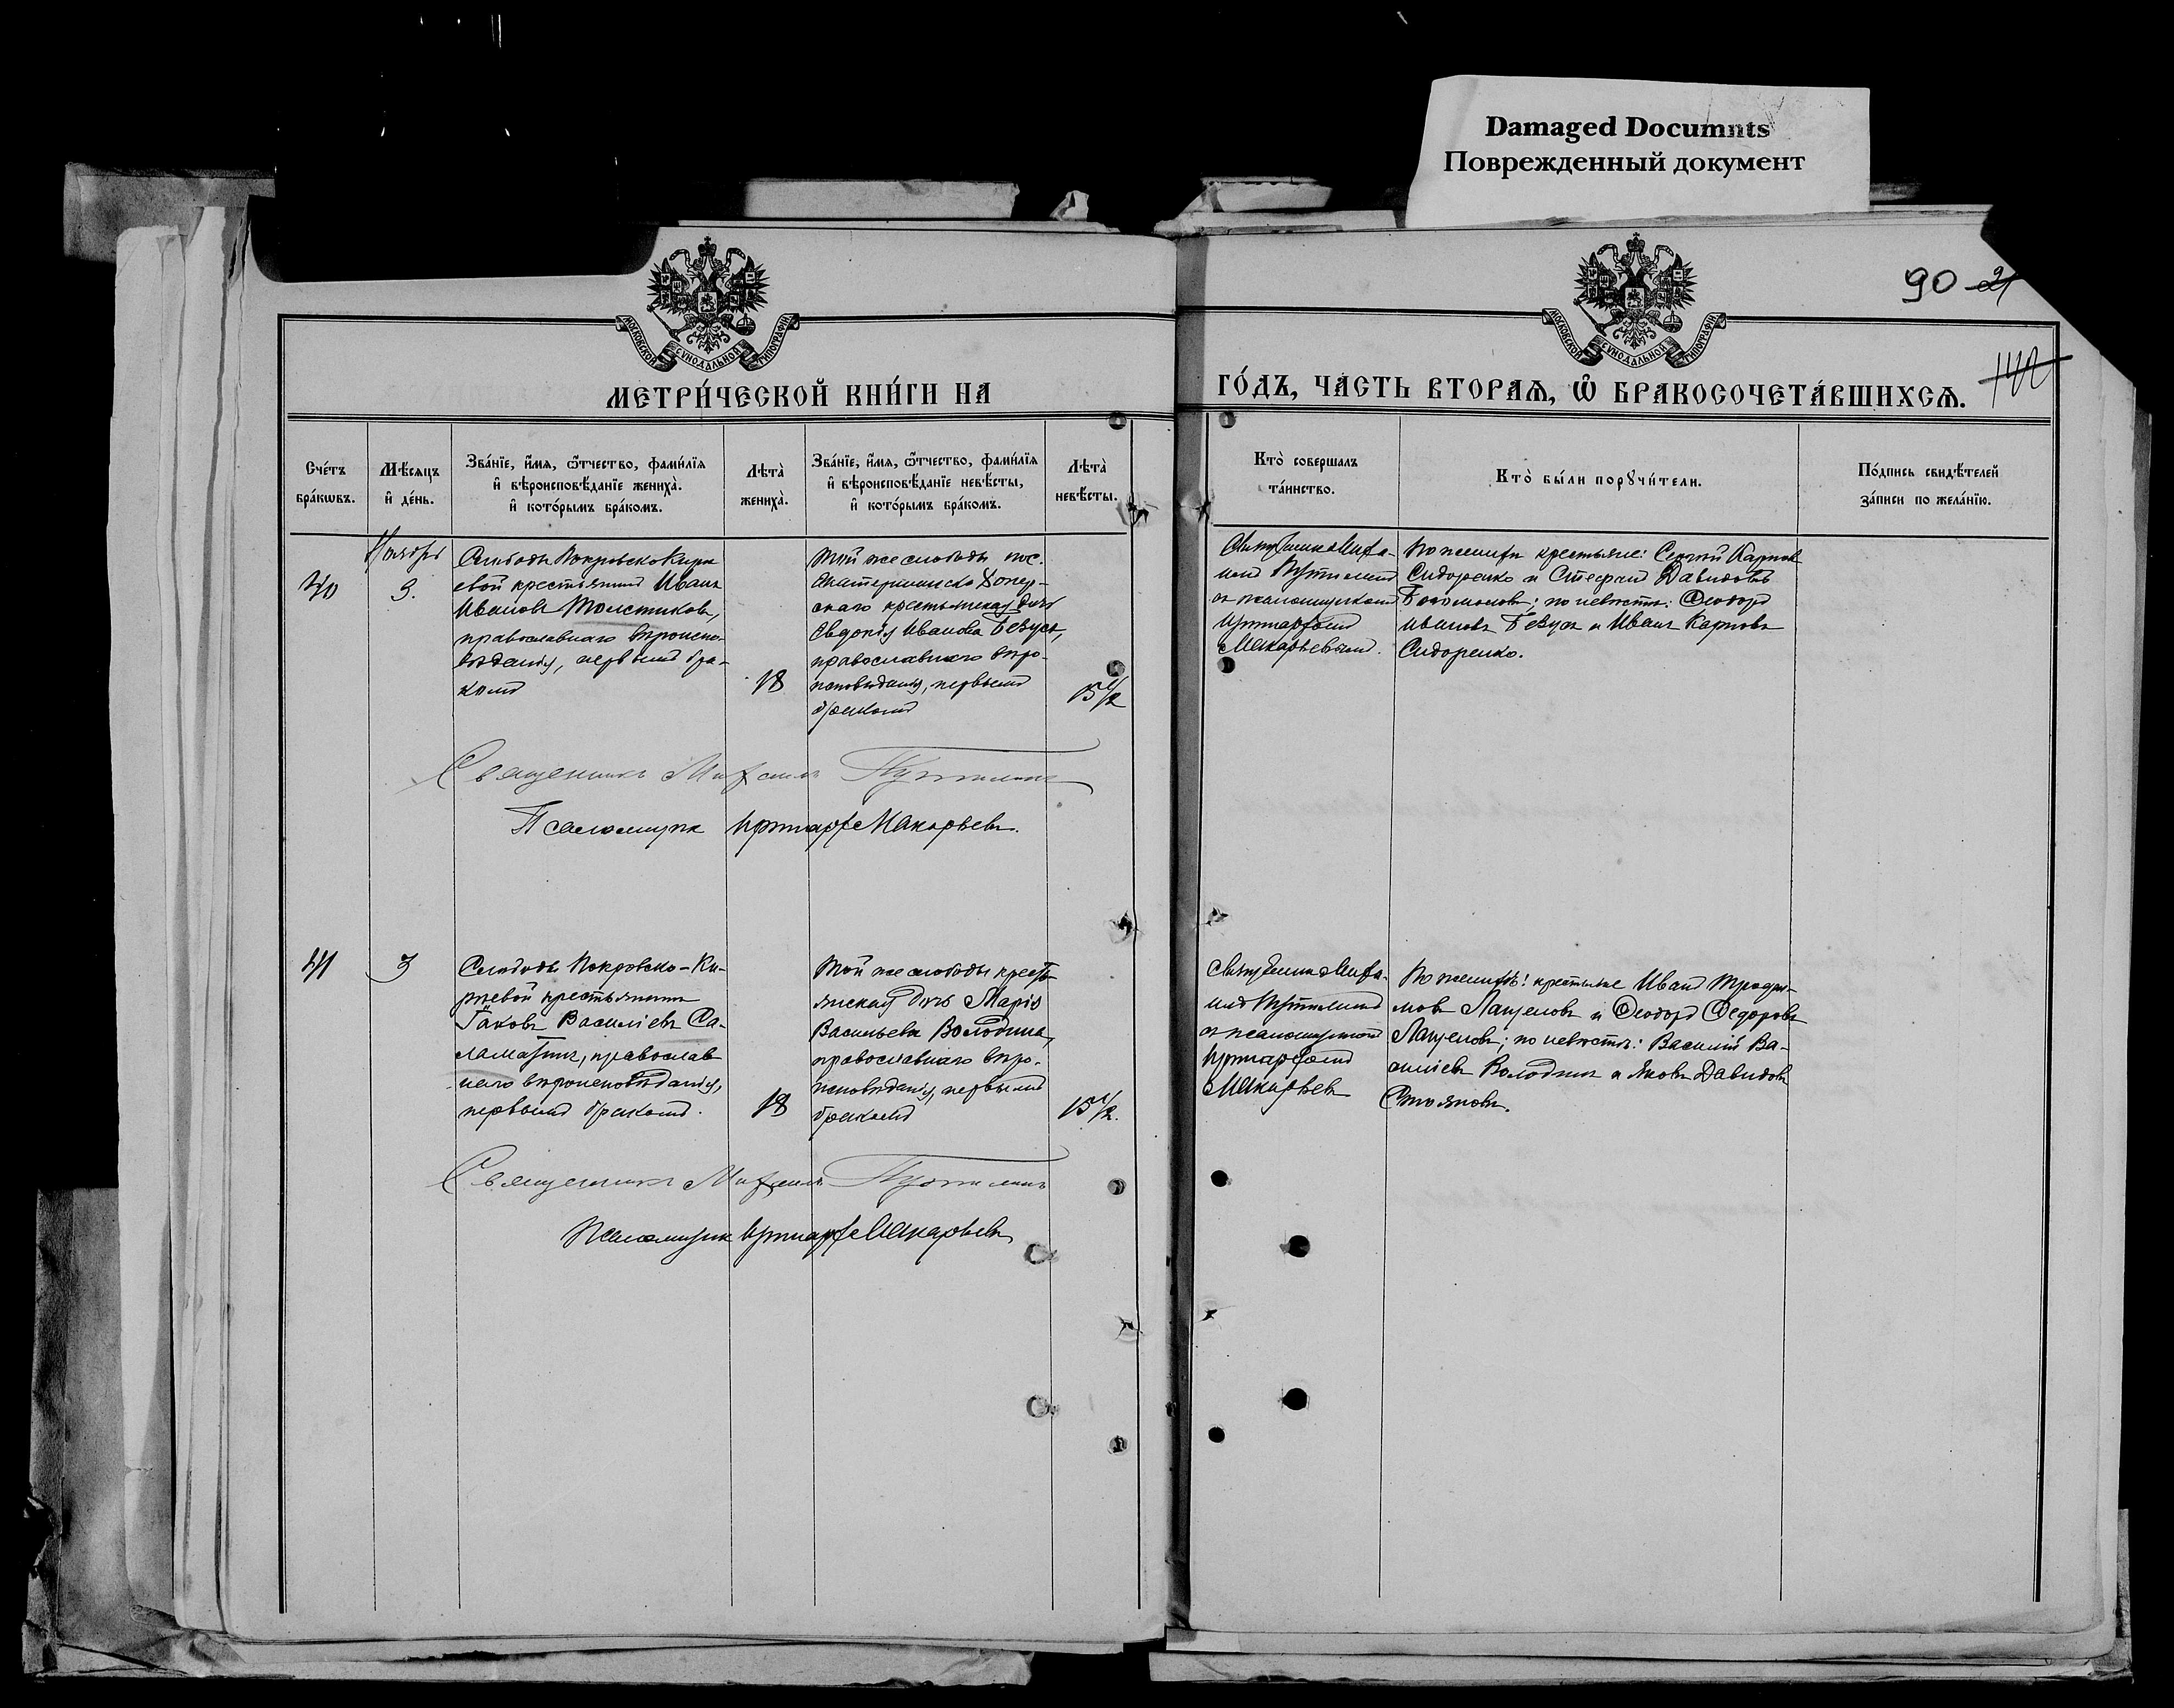 Damaged Documnts
Поврежденный документ
90 21
142
МОСКОВСКОЙ СѴНОДАЛЬНОЙ ТИПОГРАФІИ
МОСКОВСКОЙ СѴНОДАЛЬНОЙ ТИПОГРАФІИ
МЕТРИ́ЧЕСКОЙ КНИ́ГИ НА
ГО́ДЪ, ЧА́СТЬ ВТОРАѦ, Ѽ БРАКОСОЧЕТА́ВШИХСѦ.
Сче́тъ бра́кѡвъ.
Мѣ́сяцъ и҆ де́нь.
Зва́нїе, и҆́мѧ, ѻ҆́тчество, фами́лїѧ
и҆ вѣроисповѣ́данїе жениха̀.
и҆ кото́рымъ бра́комъ.
Лѣта̀ жениха̀.
Зва́нїе, и҆́мѧ, ѻ҆́тчество, фами́лїѧ
и҆ вѣроисповѣ́данїе невѣ́сты,
и҆ кото́рымъ бра́комъ.
Лѣта̀ невѣ́сты.
Кто̀ совершалъ
та́инство.
Кто̀ бы́ли порꙋчи́тели.
По́дпись свидѣ́телей
за́писи по жела́нїю.
Ноября
40
3.
Слободы Покровско Кири
евой крестьянинъ Иванъ
Ивановъ Толстиковъ,
православнаго вѣроиспо-
вѣданія, первымъ бра-
комъ
18
Той же слободы пос.
Екатерининско Хопер-
скаго крестьянская дочь
Евдокія Иванова Безусъ,
православнаго вѣро-
исповѣданія, первымъ
бракомъ
15 1/2
Священникъ Миха-
илъ Путилинъ
съ псаломщикомъ
Макарьевымъ.
По женихѣ крестьяне: Сергѣй Карповъ
Сидоренко и Стефанъ Давидовъ
Богомоловъ; по невѣстѣ: Ѳеодоръ
Ивановъ Безусъ и Иванъ Карповъ
Сидоренко.
Священникъ Михаилъ Путилинъ
Псаломщикъ Макарьевъ.
41
3
Слободы Покровско-Ки-
ріевой крестьянинъ
Іаковъ Василіевъ Са-
ламатинъ, православ
наго вѣроисповѣданія,
первымъ бракомъ.
18
Той же слободы кресть
янская дочь Марія
Васильева Володина,
православнаго вѣро-
исповѣданія, первымъ
бракомъ
15 1/2.
Священникъ Миха-
илъ Путилинъ
съ псаломщикомъ
Макарьевъ
По женихѣ: крестьяне Иванъ
Лащеновъ и Ѳеодоръ Ѳедоровъ
Лащеновъ; по невѣстѣ: Василій Ва-
силіевъ Володинъ и Яковъ Давидовъ
Стояновъ.
Священникъ Михаилъ Путилинъ
Псаломщикъ Макарьевъ